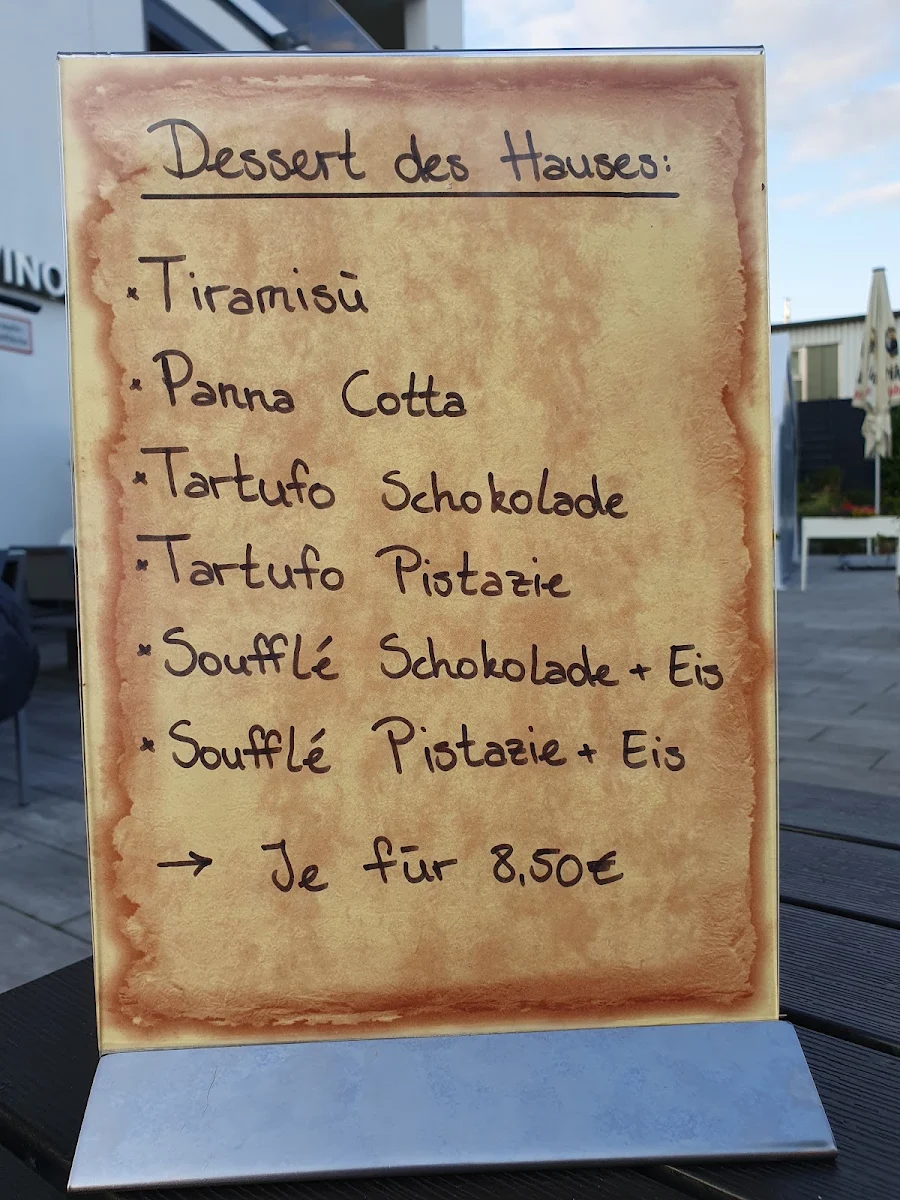 Dessert des Hauses:
× Tiramisù
× Panna Cotta
× Tartufo Schokolade
× Tartufo Pistazie
× Soufflé Schokolade + Eis
× Soufflé Pistazie + Eis
→ Je für 8,50€
INO